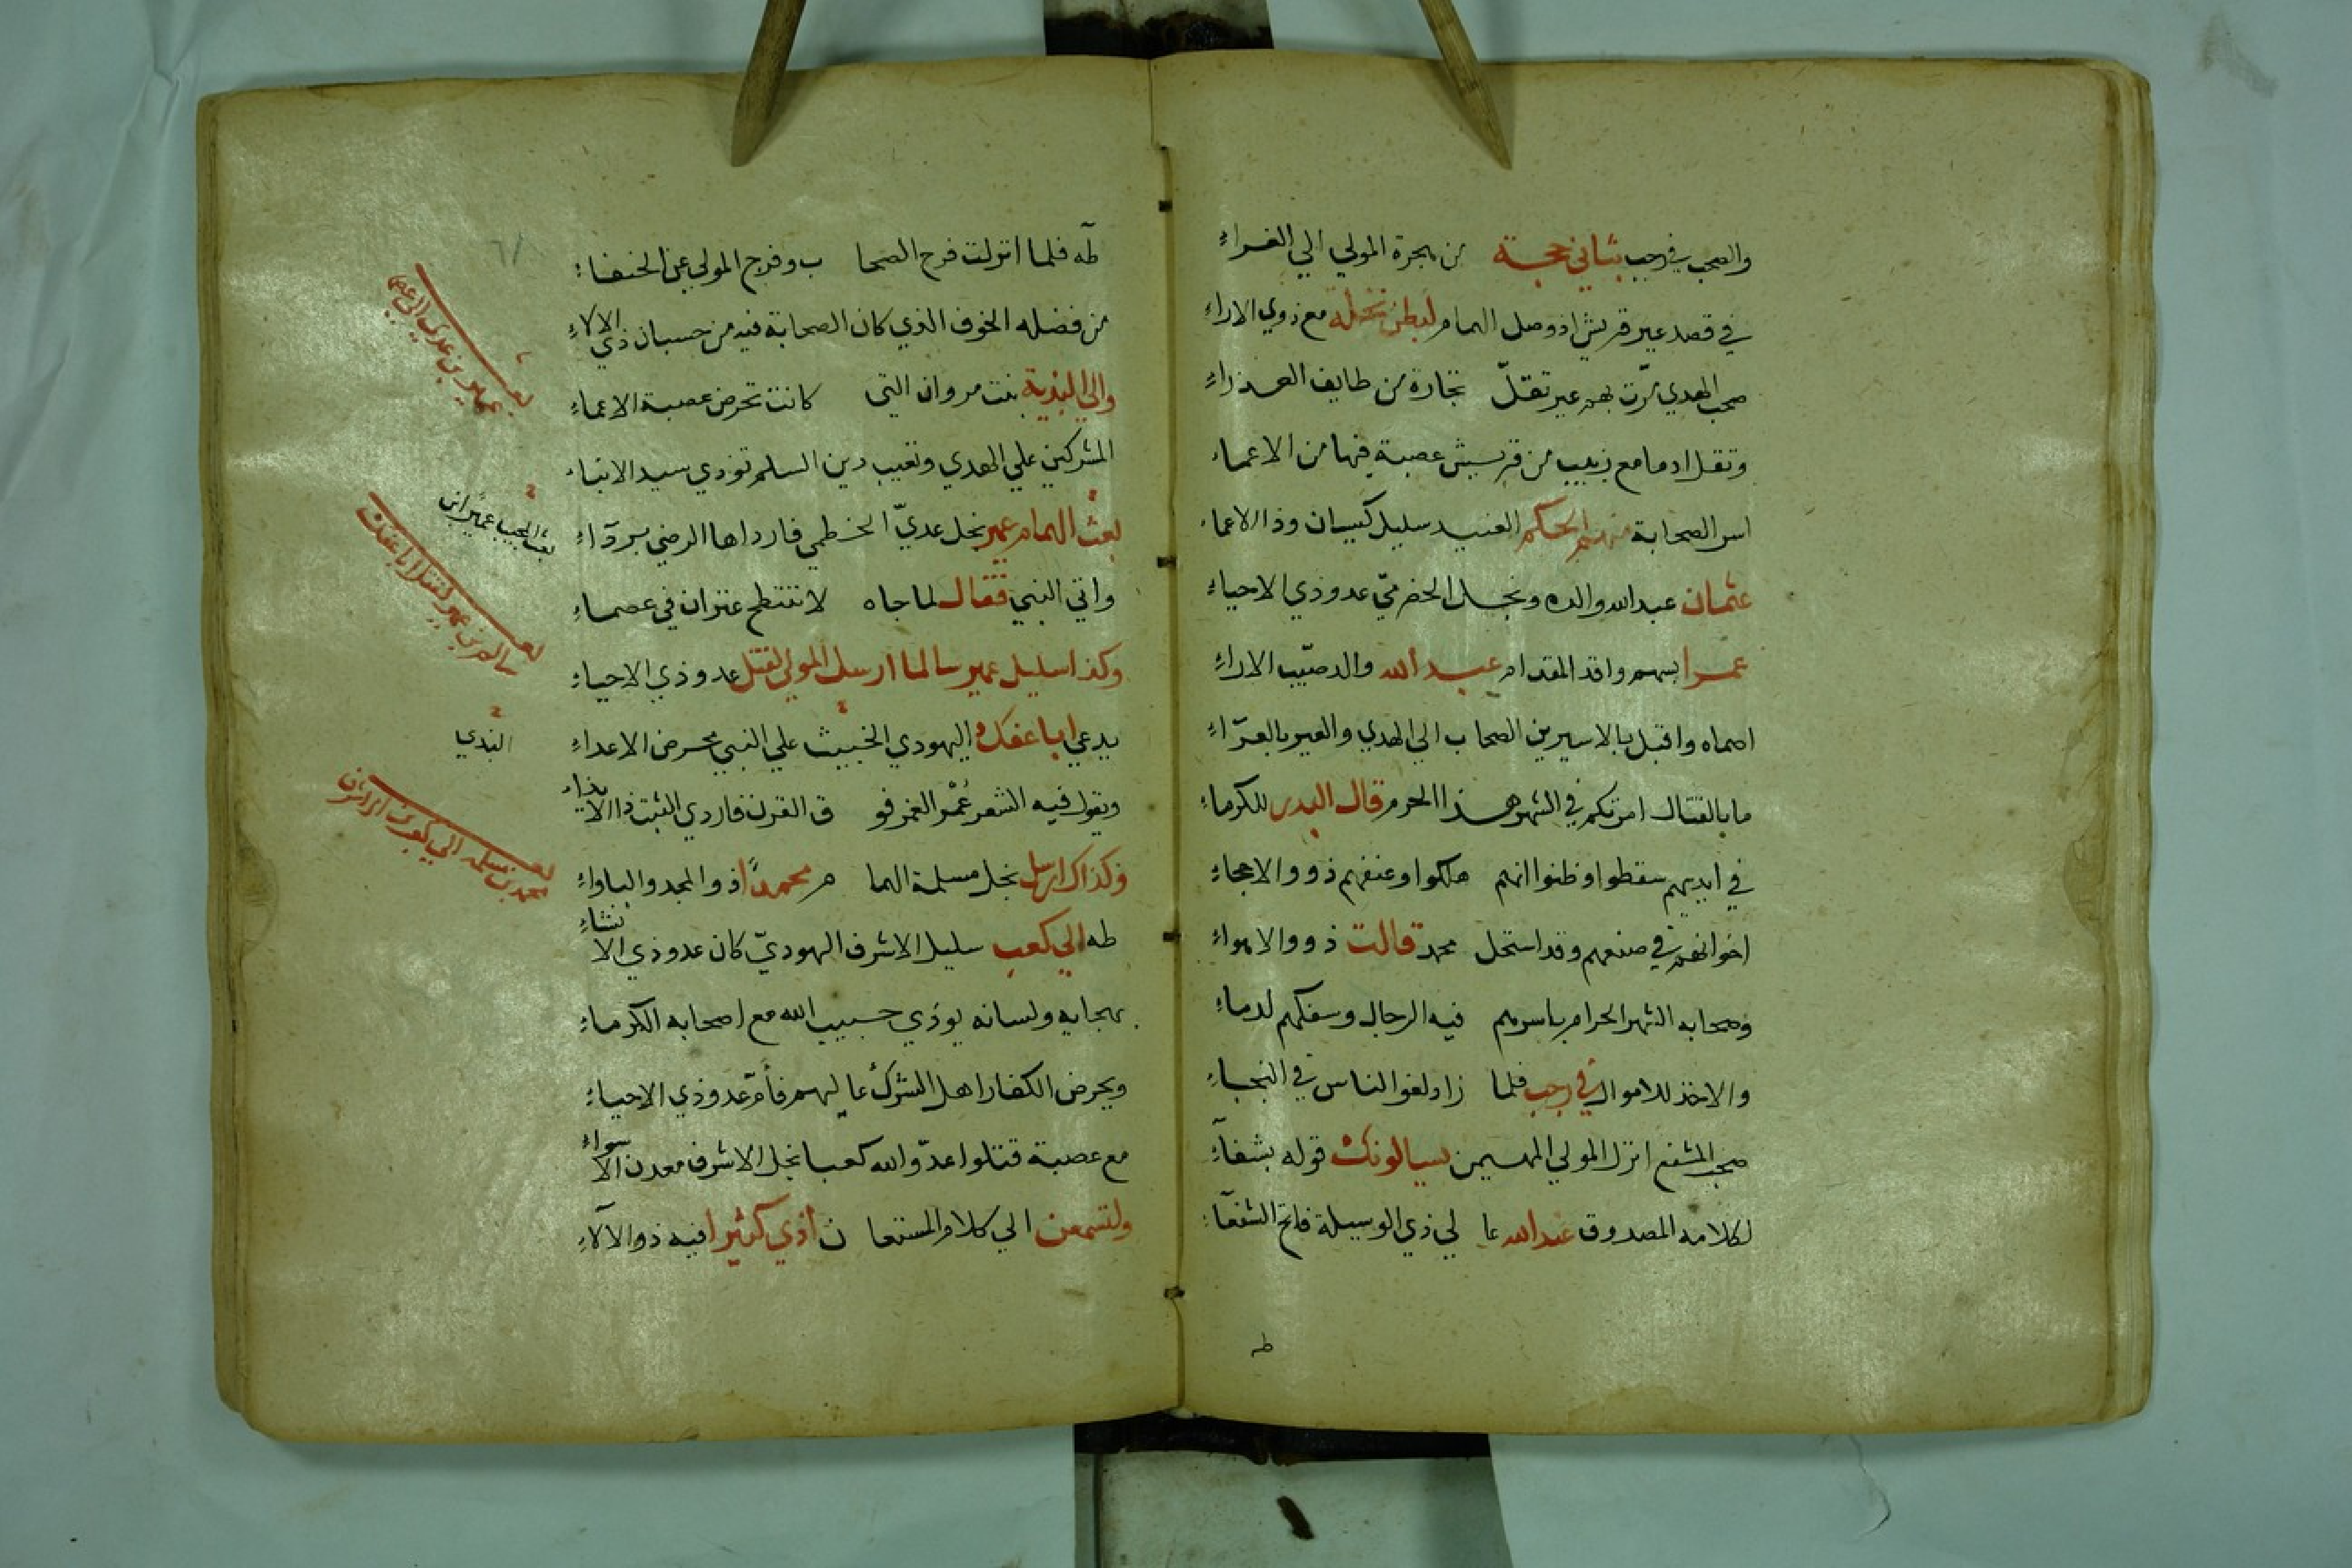 والصحب في رجب بثاني حجة من هجرة المولي الي الغراء
في قصد عير قريش اذ وصل الهمام لبطن نخلة مع ذوي الاراء
صحب الهدي مرت بهم عير تقلّ تجارة من طايف العذراء
وتقل ادما مع زبيب من قريش عصبة فيها من الاعماء
اسر الصحابة منهم الحكم العنيد سليل كيسان وذا الاعماء
عثمان عبد الله والده ونجل الحضرميّ عدو ذي الاحياء
عمرا بسهم واقد المقدام عبد الله والد صيّب الاراء
اصماه واقبل بالاسيرين الصحاب الي الهدي والعير بالعرّاء
ما بالقتال امرتكم في الشهر هذا الحرم قال البدر للكرماء
في ايديهم سقطوا وظنوا انهم هلكوا وعنفهم ذوو الاهجاء
اخوانهم في صنعهم وقد استحل محمد قالت ذوو الاهواء
وصحابه الشهر الحرام باسرهم فيه الرجال وسفكهم لدماء
والاخذ للاموال في رجب فلما زاد لغو الناس في النجباء
صحب المشفع انزل المولي المهيمن يسالونك قوله بشفآء
لكلامه المصدوق عبد الله عا لي ذي الوسيلة فاتح الشفعآء
طه
طه فلما انزلت فرح الصحا ب وفرج المولي عن الحنفاء
من فضله الخوف الذي كان الصحابة فيه من حسبان ذي الالاء
والي البذية بنت مروان التي كانت تحرض عصبة الاعماء
المشركين علي الهدي وتعيب دين السلم توذي سيد الانباء
بعث الهمام عمير نجل عديّ الخطمي فارداها الرضي بردآء
واتي النبي فقال لما جاه لا تنتطح عنزان في عصماء
وكذا سليل عمير سالما ارسل المولي لقتل عدو ذي الاحياء
يدعي ابا عفك اليهودي الخبيث علي النبي محرض الاعداء
ويقول فيه الشعر غمر الغمر فو ق القرن فاردي الثبت ذا الايذاء
وكذاك ارسل نجل مسلمة الهما م محمداً ذو المجد والباواء
طه الي كعب سليل الاشرف اليهوديّ كان عدو ذي الانشاء
بهجايه ولسانه يوذي حبيب الله مع اصحابه الكرماء
ويحرض الكفار اهل الشرك عا ليهم فأمّ عدو ذي الاحياء
مع عصبة قتلوا عدّو الله كعبا نجل الاشرف معدن الاسواء
ولتسمعن الي كلام المستعا ن أذي كثيرا فيه ذو الالآء
بعث عمير بن عدي الي عصما
بعث الحبيب عمير ابن
بعث سالم بن عمير لقتل ابا عفك
البدي
بعث محمد بن مسلمة الي كعب بن الاشرف